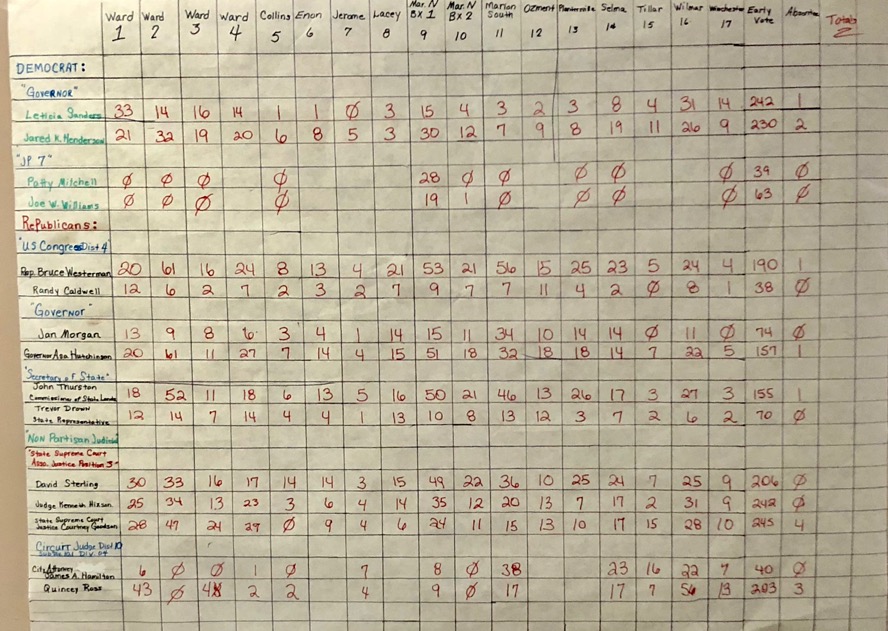 Ward 1 Ward 2 Ward 3 Ward 4 Collins 5 Enon 6 Jerome 7 Lacey 8 Mar. N Bx 1 9 Mar. N Bx 2 10 Marion South 11 Ozment 12 13 Selma 14 Tillar 15 Wilmar 16 Winchester 17 Early Vote Absentee Totals
DEMOCRAT:
"GOVERNOR"
Leticia Sanders 33 14 16 14 1 1 Ø 3 15 4 3 2 3 8 4 31 14 242 1
Jared K. Henderson 21 32 19 20 6 8 5 3 30 12 7 9 8 19 11 26 9 230 2
"JP 7"
Patty Milchell Ø Ø Ø Ø 28 Ø Ø Ø Ø Ø 39 Ø
Joe W. Williams Ø Ø Ø Ø 19 1 Ø Ø Ø Ø 63 Ø
RePublicans:
"US Congress Dist 4"
Rep. Bruce Westerman 20 61 16 24 8 13 4 21 53 21 56 15 25 23 5 24 4 190 1
Randy Caldwell 12 6 2 7 2 3 2 7 9 7 7 11 4 2 Ø 8 1 38 Ø
"Governor"
Jan Morgan 13 9 8 6 3 4 1 14 15 11 34 10 14 14 Ø 11 Ø 74 Ø
Governor Asa Hutchinson 20 61 11 27 7 14 4 15 51 18 32 18 18 14 7 22 5 157 1
"Secretary of State"
John Thurston
Commissioner of State Lands 18 52 11 18 6 13 5 16 50 21 46 13 26 17 3 27 3 155 1
Trevor Drown
State Representative 12 14 7 14 4 4 1 13 10 8 13 12 3 7 2 6 2 70 Ø
"NON Partisan Judicial"
"State Supreme Court
Asso. Justice Position 3"
David Sterling 30 33 16 17 14 14 3 15 49 22 36 10 25 24 7 25 9 206 Ø
Judge Kenneth Hixson 25 34 13 23 3 6 4 14 35 12 20 13 7 17 2 31 9 242 Ø
State Supreme Court
Justice Courtney Goodson 28 47 24 29 Ø 9 4 6 24 11 15 13 10 17 15 28 10 245 4
Circuit Judge Dist 10
Div. 04
City Attorney
James A. Hamilton 6 Ø Ø 1 Ø 7 8 Ø 38 23 16 22 7 40 Ø
Quincey Ross 43 Ø 2 2 4 9 Ø 17 17 7 56 13 203 3